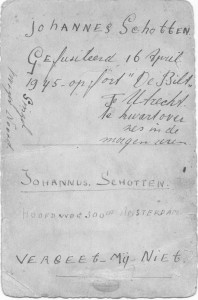 Johannes Schotten
Gefusileerd 16 April
1945 op fort "De Bilt"
Utrecht
te kwart over
zes in de
morgen uren
JOHANNUS. SCHOTTEN.
AMSTERDAM
VERGEET-MIJ-NIET